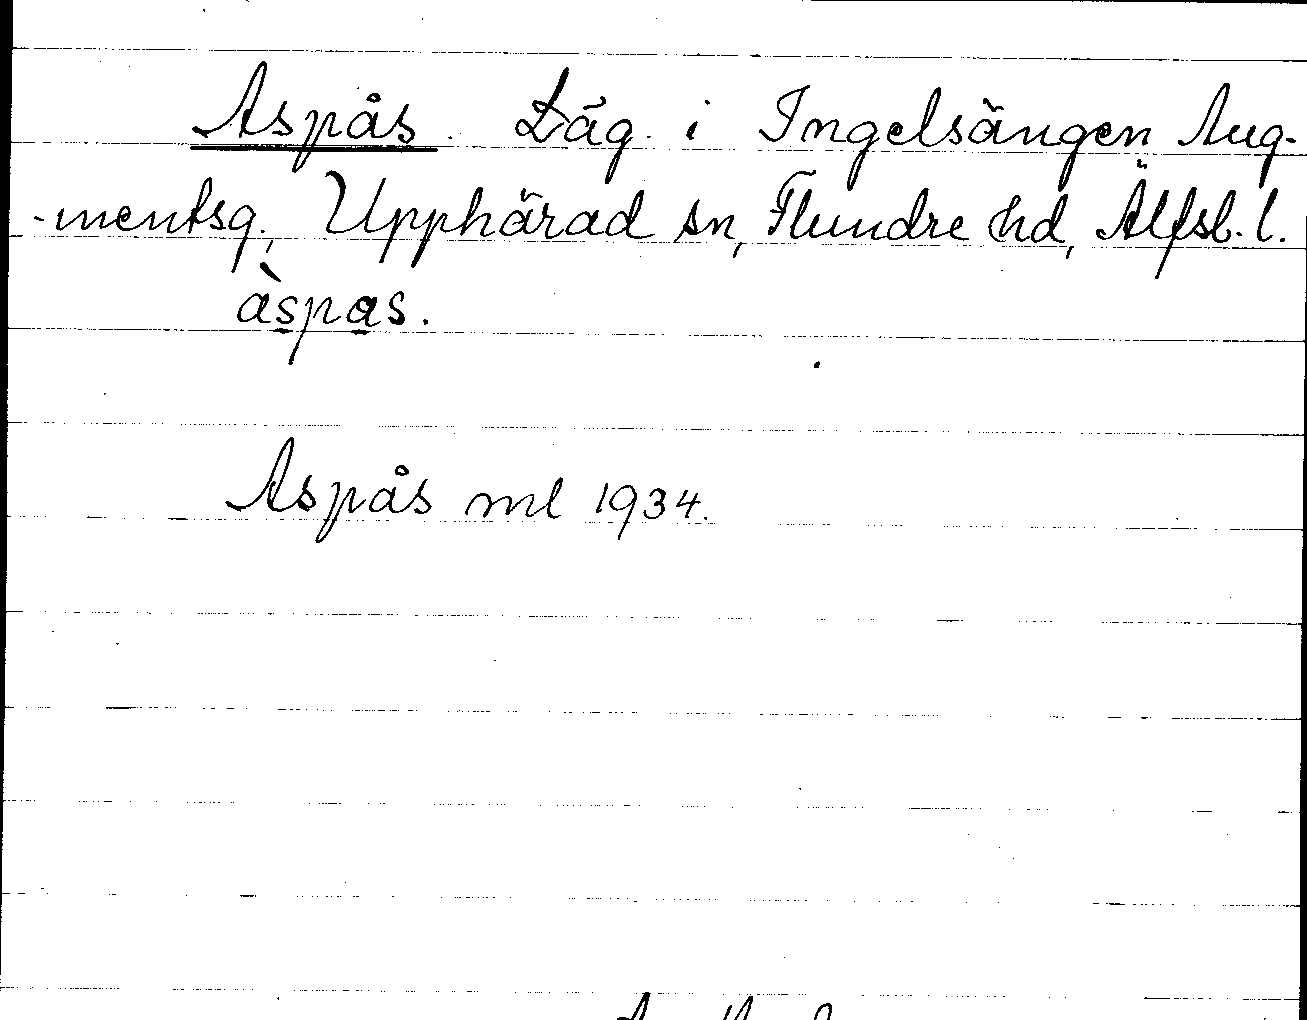 Aspås. Läg. i Ingelsängen Aug-
-mentsg., Upphärad sn, Flundre hd, Älfsb. l.
àspas.
Aspås ml 1934.